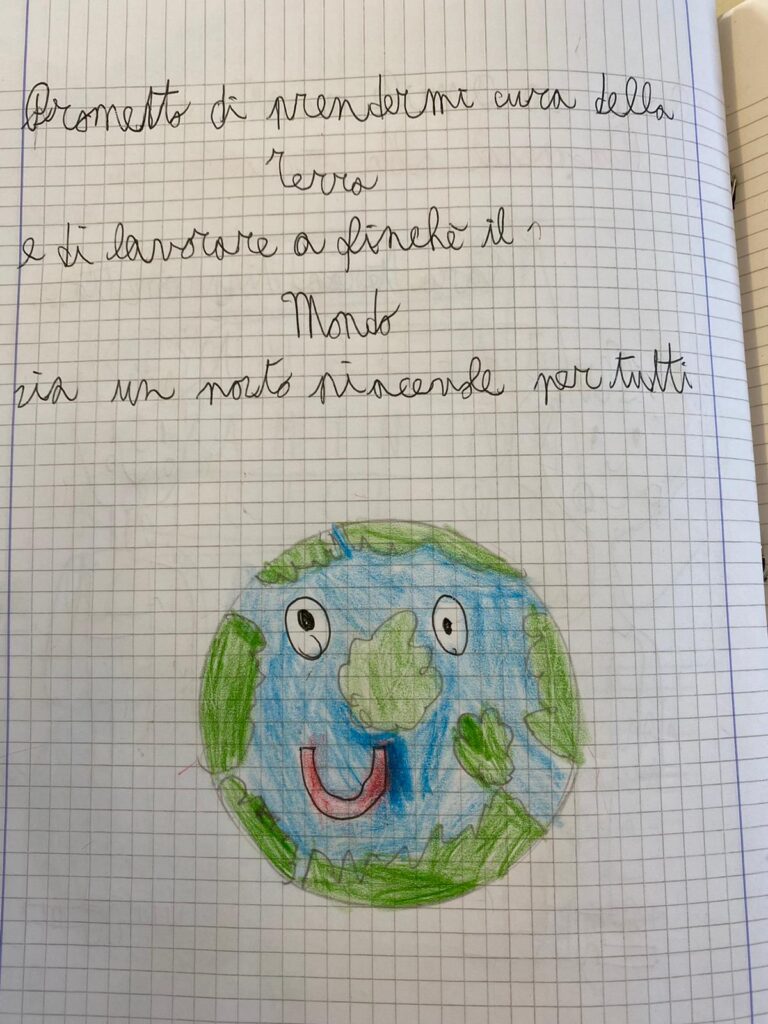 Prometto di prendermi cura della
Terra
e di lavorare a finchè il
Mondo
sia un posto piacevole per tutti